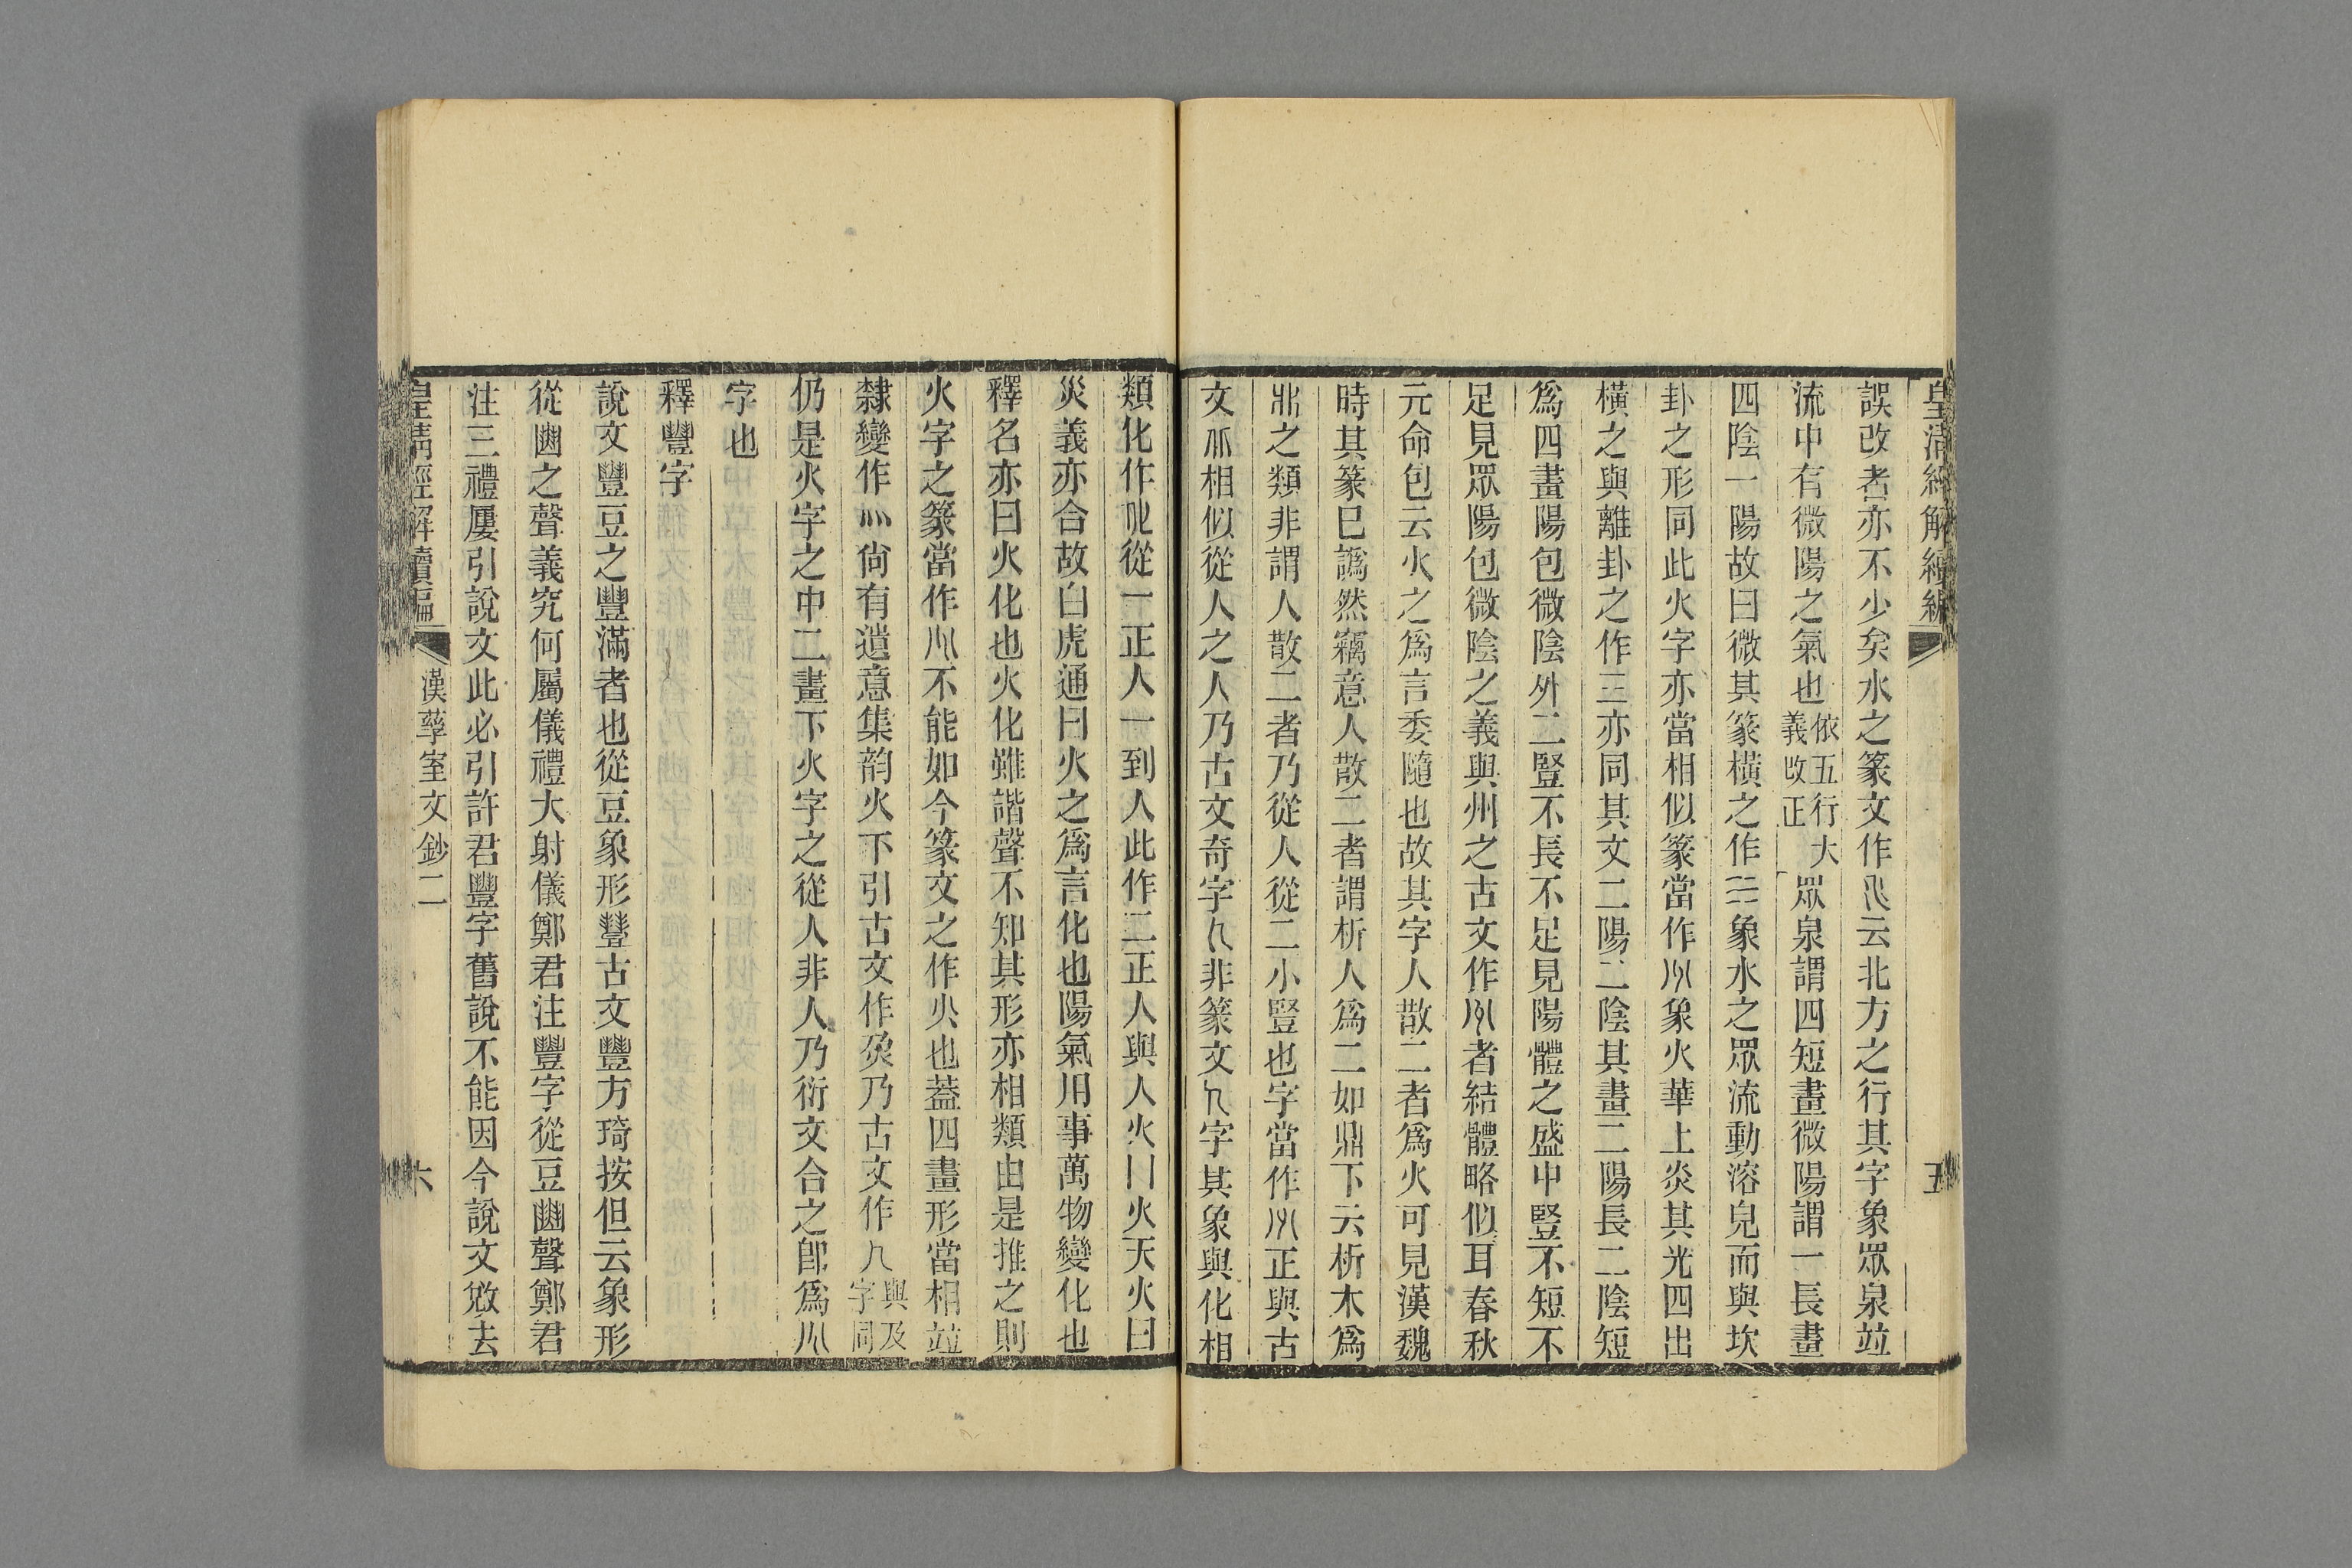 皇清經解續編
五
誤改者亦不少矣水之篆文作云北方之行其字象眾泉並
流中有微陽之氣也依五行大義改正眾泉謂四短畫微陽謂一長畫
四陰一陽故曰微其篆橫之作象水之眾流動溶皃而與坎
卦之形同此火字亦當相似篆當作象火華上炎其光四出
橫之與離卦之作三亦同其文二陽二陰其畫二陽長二陰短
爲四畫陽包微陰外二豎不長不足見陽體之盛中豎不短不
足見眾陽包微陰之義與州之古文作者結體略似耳春秋
元命包云火之爲言委隨也故其字人散二者爲火可見漢魏
時其篆已譌然竊意人散二者謂析人爲二如鼎下云析木爲
之類非謂人散二者乃從人從二小豎也字當作正與古
文相似從人之人乃古文奇字非篆文字其象與化相
類化作從一正人一到人此作二正人與人火曰火天火曰
災義亦合故白虎通曰火之爲言化也陽氣用事萬物變化也
釋名亦曰火化也火化雖諧聲不知其形亦相類由是推之則
火字之篆當作不能如今篆文之作火也蓋四畫形當相並
隸變作灬尚有遺意集韵火下引古文作乃古文作與及字同
仍是火字之中二畫下火字之從人非人乃衍文合之卽爲
字也
釋豐字
說文豐豆之豐滿者也從豆象形古文豐方琦按但云象形
從之聲義究何屬儀禮大射儀鄭君注豐字從豆聲鄭君
注三禮屢引說文此必引許君豐字舊說不能因今說文敚去
皇清經解續編
漢孳室文鈔二
六